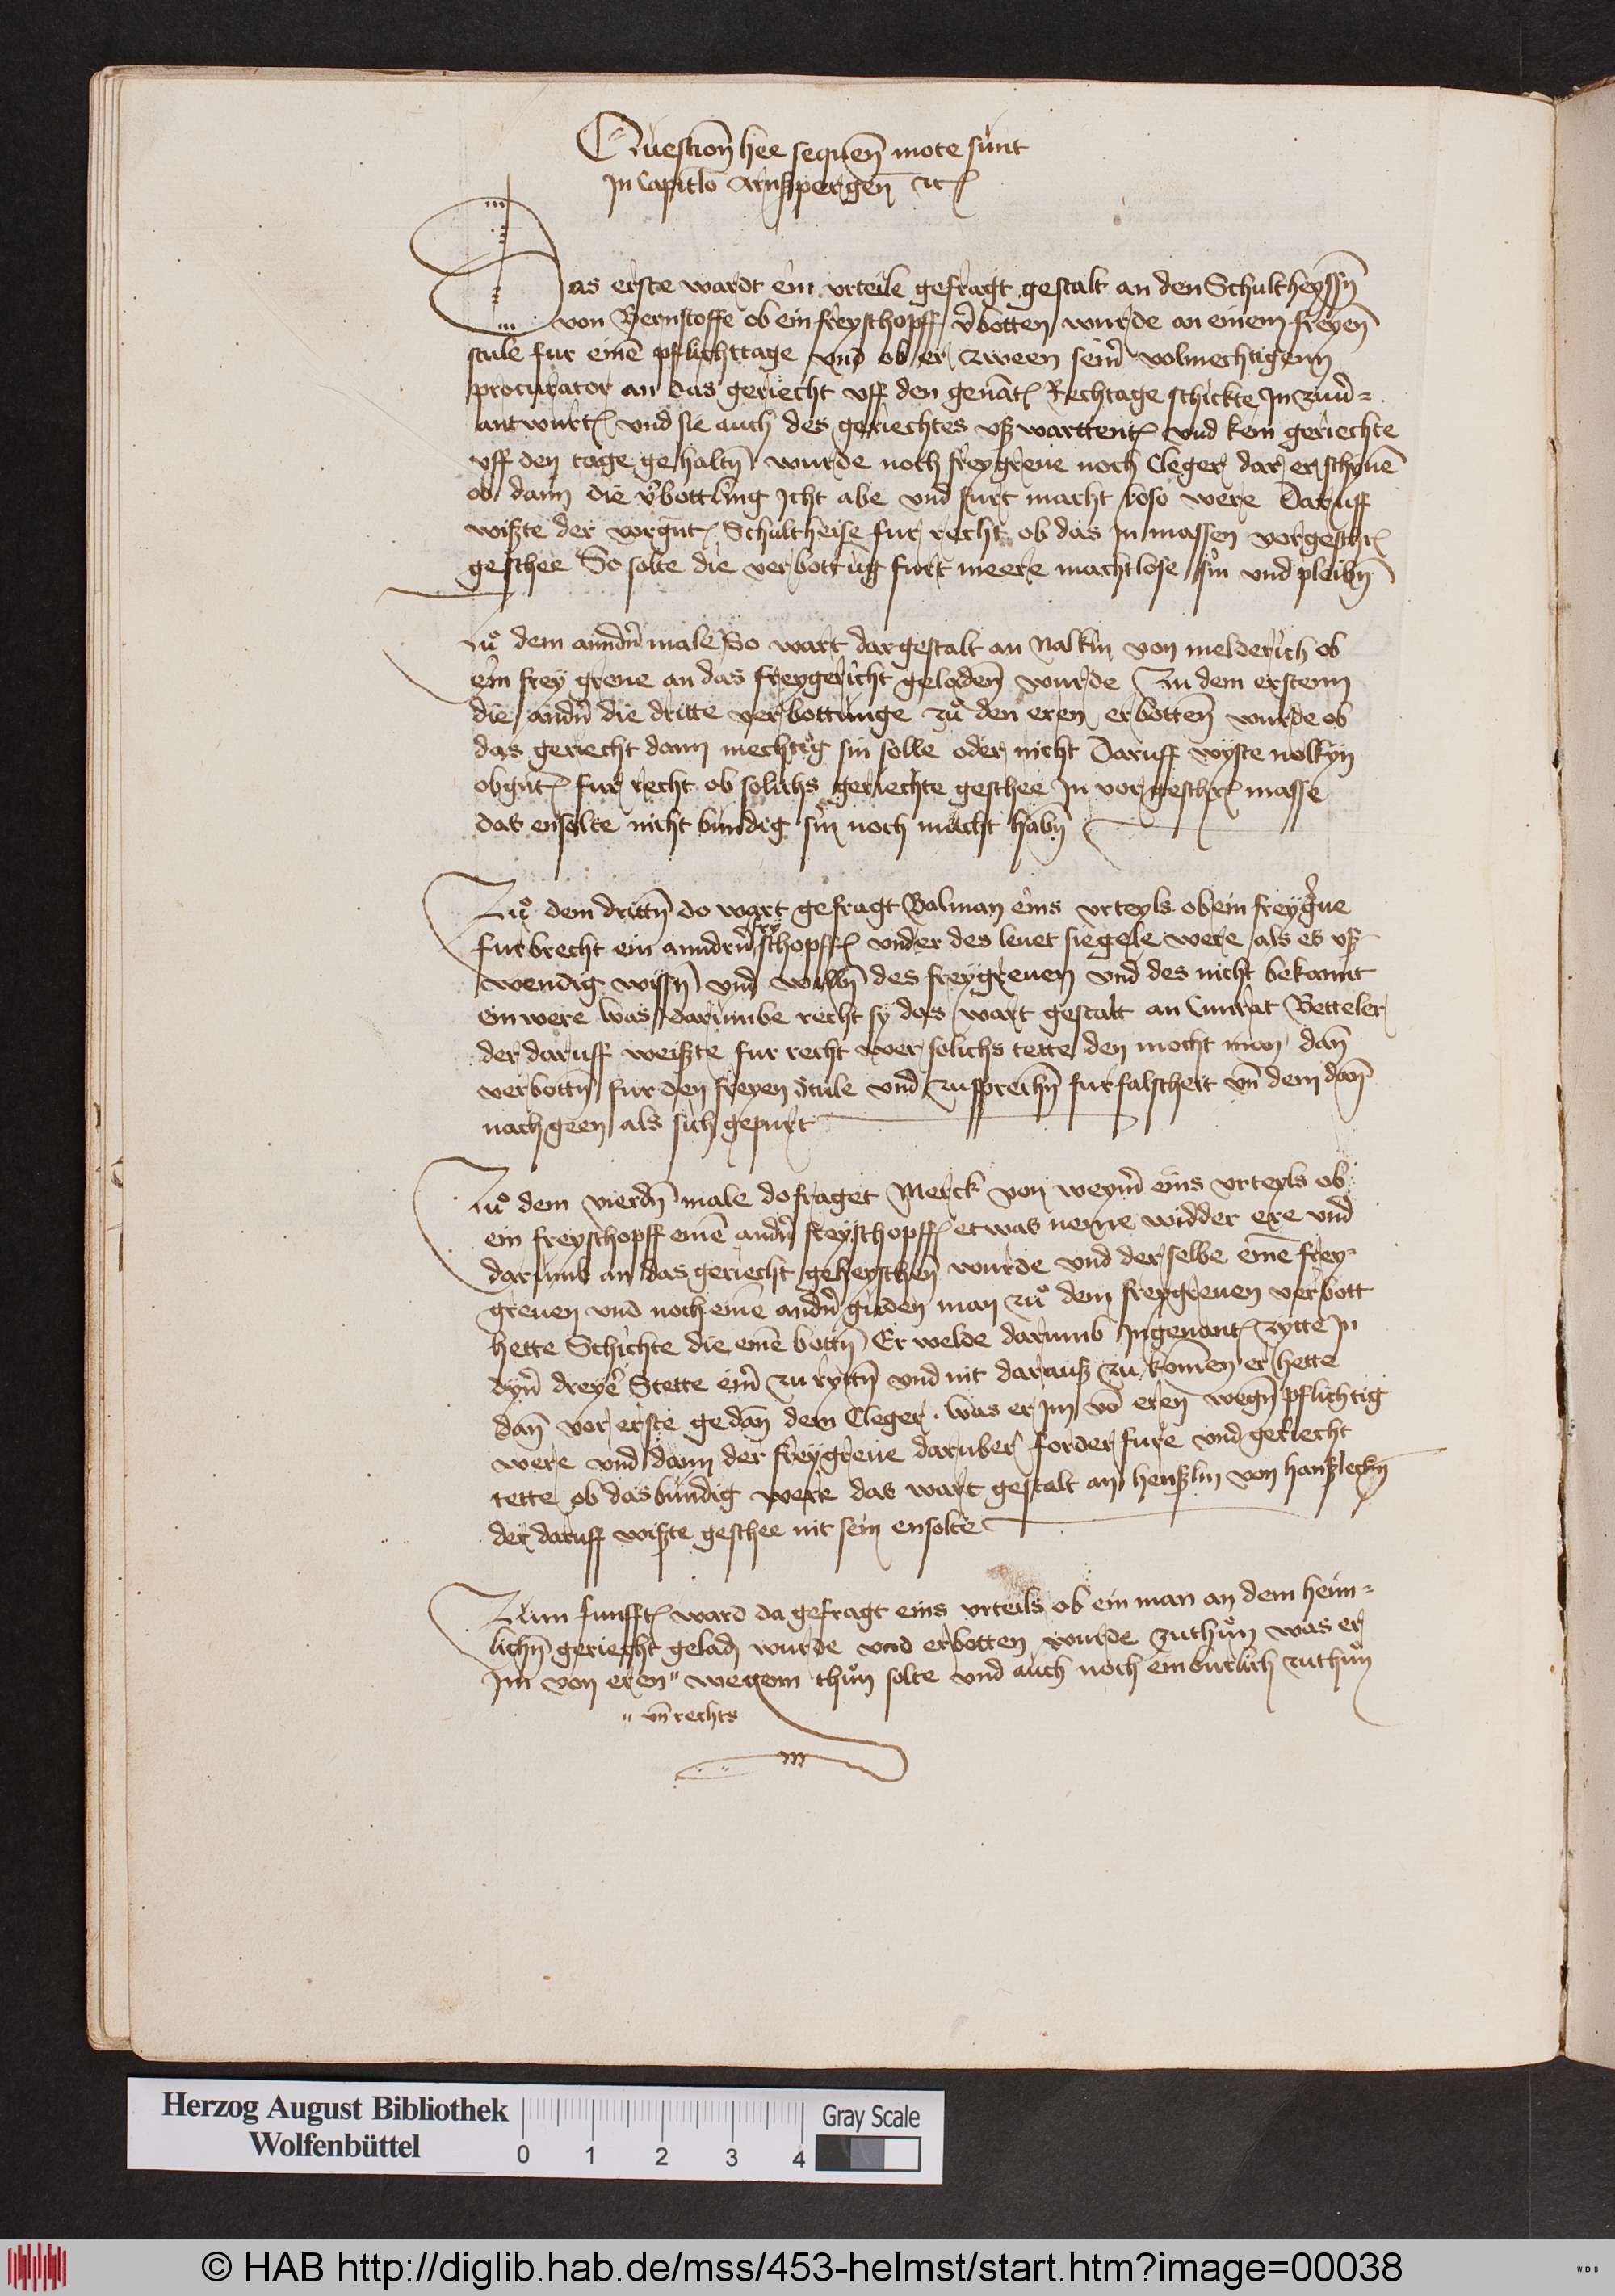 Question̄ hee sequen̄ mote sunt
In Capitlo Arnsspergen̄ ꝛc
Das erste wardt ein vrteile gefragt gestalt an den Schultheyssn̄
von Bernstoffe ob ein freyschopff v̄botten wurde an einem freyen̄
stule fur einē pflichttage vnd ob er zween seiner volmechtigenn
procurator an das geriecht vff den genāt Rechtage schickte In zuu̇=
antwurt vnd sie auch des geriechtes vß warttent vnd kein geriechte
vff den tage gehaltn̄ wurde noch freygreue noch Cleger dar erschynē
ob dann die v̄bottung Icht abe vnd furt macht loso were Daruff
wißte der vorgnt Schultheise fur recht ob das In massen vorgeschr
geschee So solte die verbottūg furt meere machtlose sin vnd pleibn̄
Zů dem anndn̄ male So wart dargestalt an Nalkin von melderich ob
ein frey greue an das freygericht geladen̄ wurde Zu dem erstenn
die andn̄ die dritte verbottunge zů den eren erbotten̄ wurde ob
das geriecht dann mechtig sin solle oder nicht Daruff wyste nolkyn
obgnt fur recht ob solichs geriechte geschee In vorgeschr masse
das ensolte nicht bundig sin noch macht habn̄
Zů dem drittn̄ do wart gefragt Balman eins vrteyls ob ein freygreue
furbrecht ein anndrn̄ fry schopff vnder des leuet siegele were als es vß
wendig wissn̄ vnd willn̄ des freygreuen vnd des nicht bekannt
ein were was darumbe recht sy das wart gestalt an Cunrat Betteler
der daruff weißte fur recht wer solichs tette den mocht man dan̄
verbottn̄ fur den freyen Stule vnd zusprechn̄ fur falscheit vn̄ dem dan̄
nach geen als sich gepurt
Zů dem vierdn̄ male do fraget Merck von weym̄ eins vrteyls ob
ein freyschopff einē andn̄ freyschopff etwas neme widder ere vnd
darumb an das geriecht geheyschen̄ wurde vnd der selbe eine frey=
greuen vnd noch einē andn̄ guden man zů dem freygreuen verbott
hette Schichte die einē bottn̄ Er welde darumb In genant zytte In
dyn̄ dreyer Stette ein̄ zu rytn̄ vnd nit darauß zu komen er hette
dan̄ vor erste gedan̄ dem Cleger was er im vō eren̄ wegn̄ pflichtig
were vnd dann der freygreue daruber forder fure vnd geriecht
tette ob das bundig were das wart gestalt an henßlin von hanßleckn̄
der daruff wißte geschee nit sein ensolte
Zum funfft ward da gefragt eins vrteils ob ein man an dem heim=
lichn̄ geriecht geladn̄ wurde vnd erbotten wurde zuthůn was er
Im von eren " wegenn thůn solte vnd auch noch emburlich zuthůn
" vn̄ rechts
Herzog August Bibliothek
Wolfenbüttel
0 1 2 3 4
Gray Scale
© HAB http://diglib.hab.de/mss/453-helmst/start.htm?image=00038
W D B